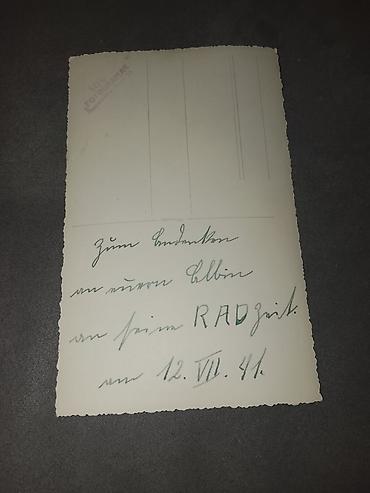 Zum Andenken
an euern Albin
an seine RADzeit.
am 12. VII. 41.